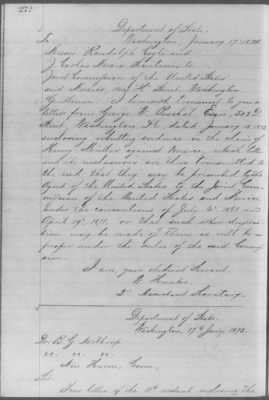 272
Department of State,
Washington, January 17th 1873.
To
Messrs Randolph Coyle and
J. Carlos Mexia Secretaries to
Joint Commission of the United States
and Mexico, H Street Washington
Gentlemen: I herewith transmit to you a
letter from George W. Paschal, Esqr.
Street, Washington D.C. dated January 15 1873
enclosing evidence on the claim of
Henry Miller against Mexico, which letter
and its enclosures are thus transmitted to
the end that they may be presented by the
Agent of the United States to the Joint Com-
mission of the United States and Mexico,
under the conventions of July 4th 1868 and
April 19th 1871, or that such other disposi-
tion may be made of them as will be
proper under the rules of the said Commis-
sion.
I am your obedient Servant
W. Hunter
2d Assistant Secretary.
Department of State,
Washington 17th Jany 1873.
Dr. B G Northrop
&c. &c. &c.
New Haven, Conn.
Sir:
Your letter of the 10th instant enclosing the